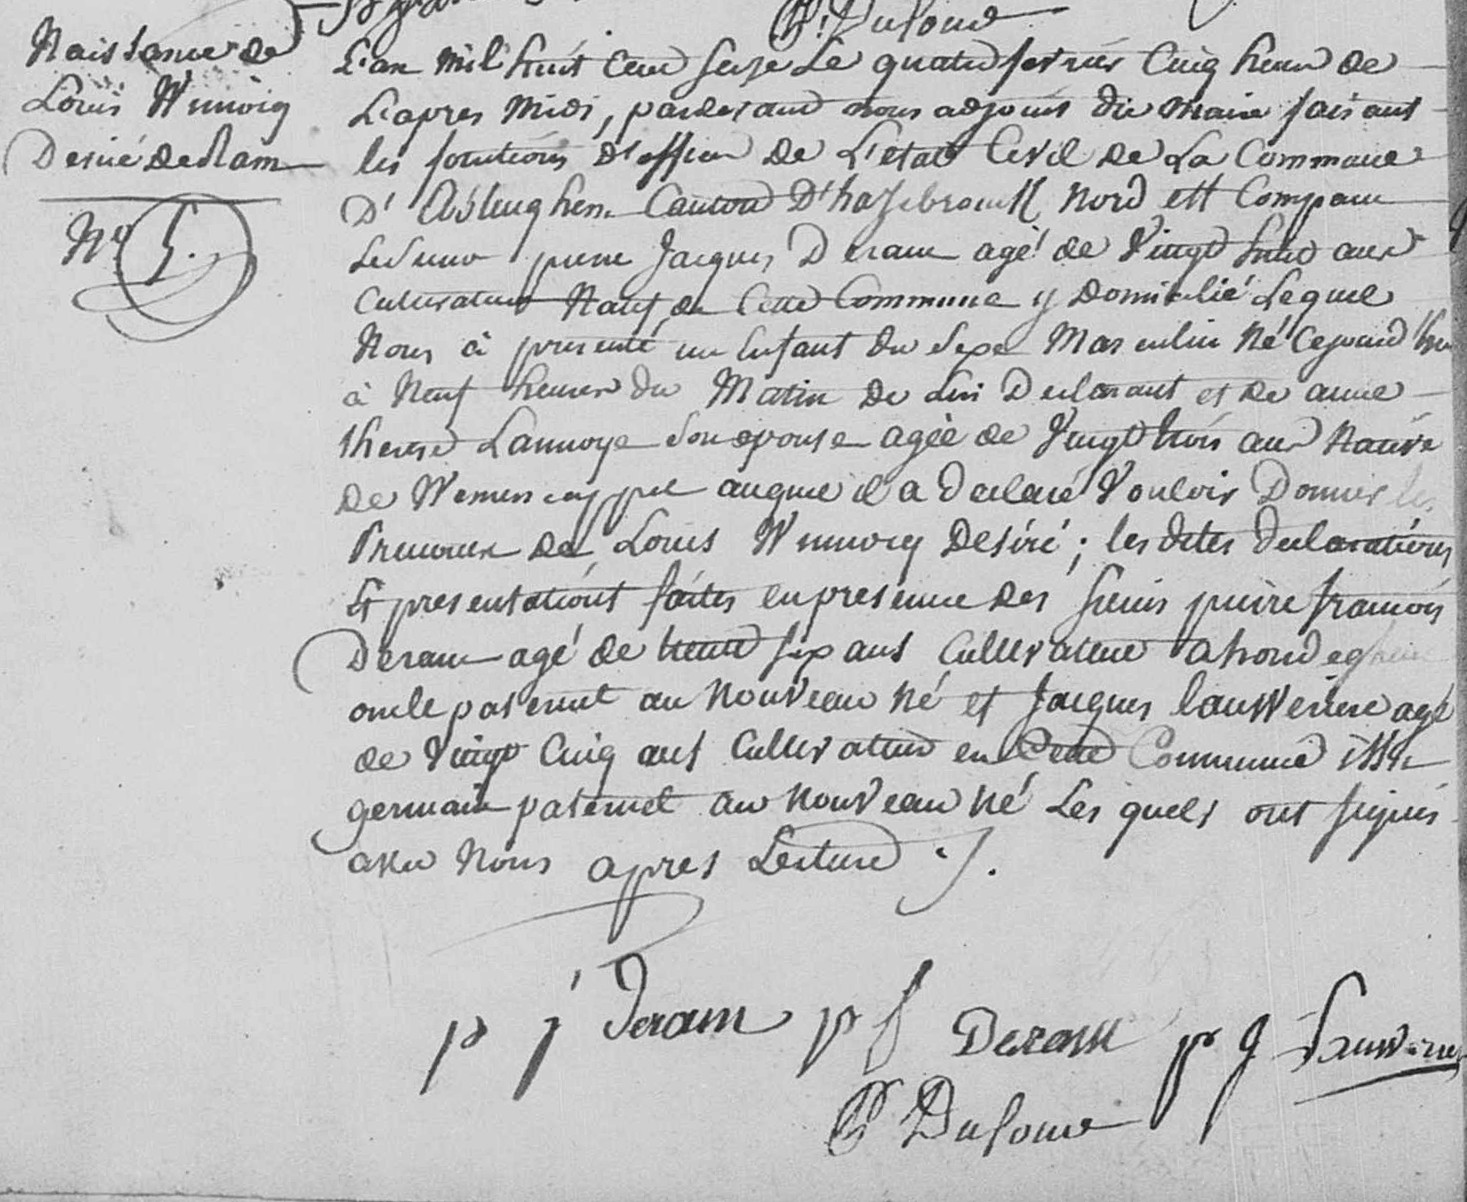 Naissance de
Louis Winnocq
Desiré Deram
N° 5.
L'an mil huit cent seize le quatre fevrier cinq heure de
L'apres midi, pardevant nous adjoint du maire faisant
les fonctions d'officier de L'etat Civil de La Commune
D'Eblinghem Canton D'hazebrouck Nord est Comparu
Le Sieur pierre Jacques Deram agé de vingt huit ans
Cultivateur Natif de cette Commune y Domicilié Lequel
Nous à presenté un Enfant du sexe Masculin Né cejourd'hui
à Neuf heures du Matin de Lui Declarant et de anne
therese Lannoye son epouse agée de vingt trois ans Native
de Wemerscappel auquel il a declaré vouloir Donner les
Prenoms de Louis Winnocq Desiré; les dites declarations
Et presentations faites en presence des sieurs pierre francois
Deram agé de trente six ans Cultivateur a hondeghem
oncle paternel au nouveau né et Jacques lauwerière agé
de vingt cinq ans Cultivateur en Cette Commune
germain paternel au nouveau né Les quels ont signés
avec Nous apres Lecture ./.
p j Deram p f Deram p J Lauwerier